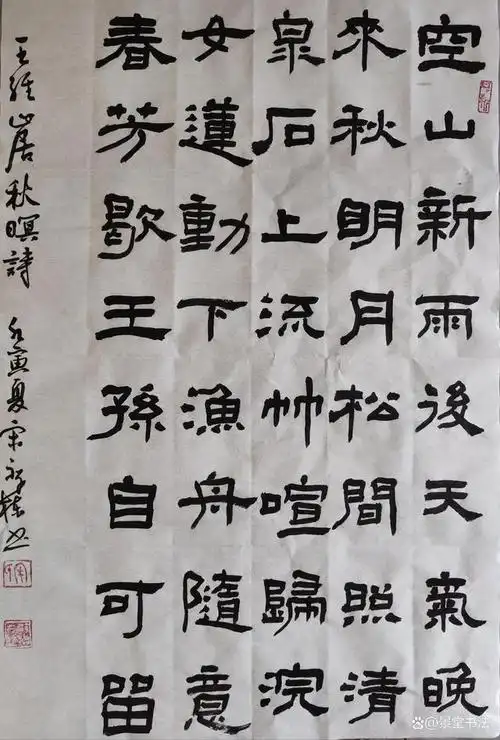 空山新雨後天氣晚
來秋明月松間照清
泉石上流竹喧歸浣
女蓮動下漁舟隨意
春芳歇王孫自可留
王維山居秋暝詩 壬寅夏宋